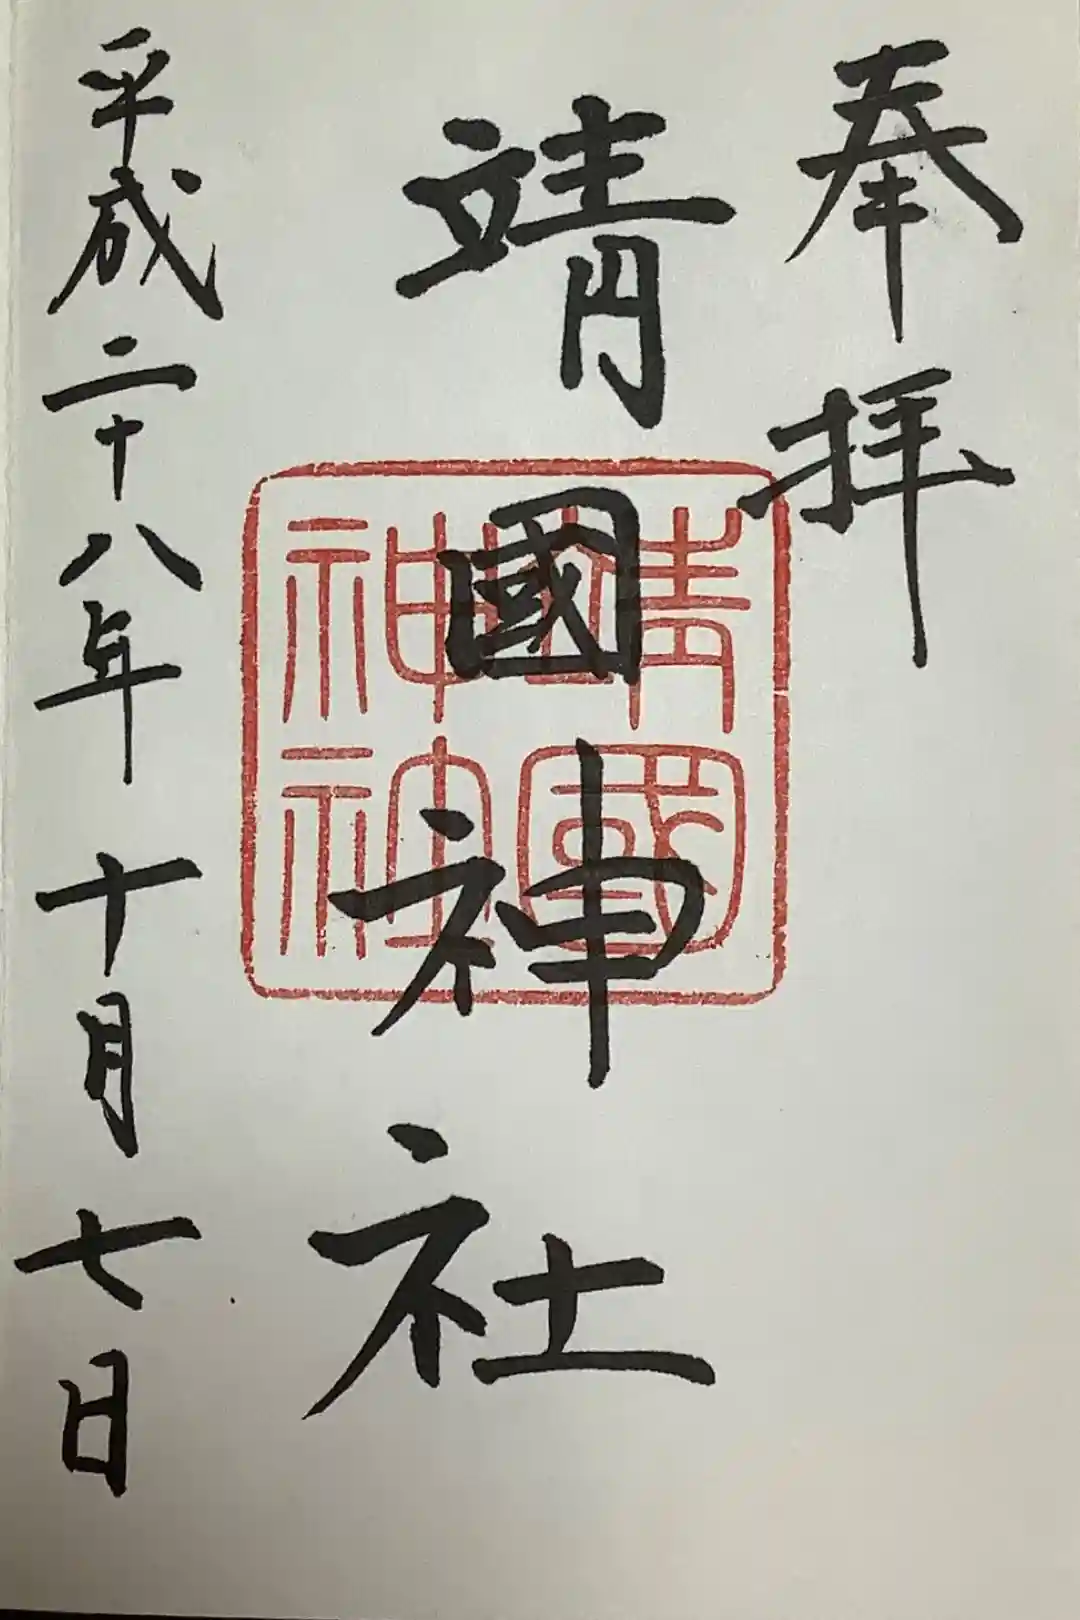 奉拝
靖國神社
靖國
神社
平成二十八年十月七日